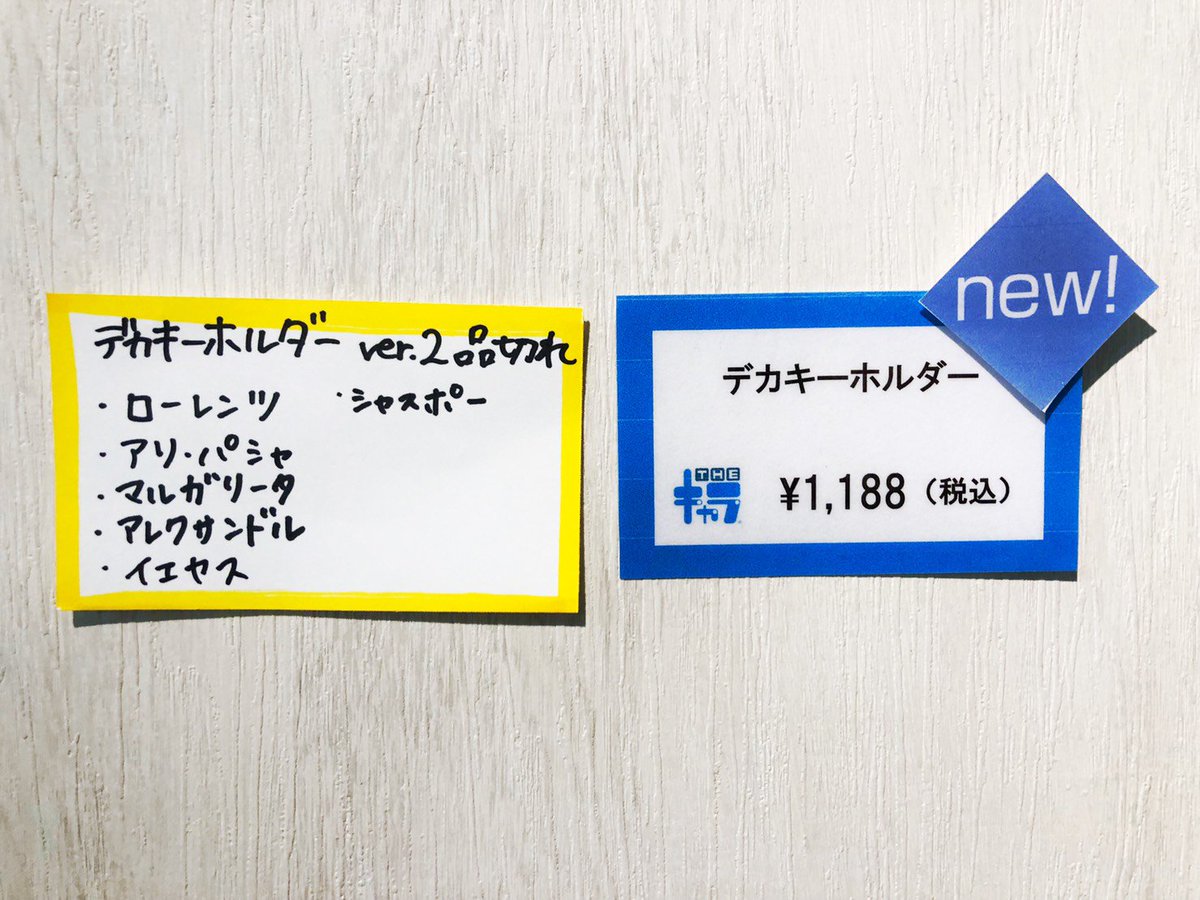 デカキーホルダー ver.2 品切れ
・ローレンツ ・シャスポー
・アリ・パシャ
・マルガリータ
・アレクサンドル
・イエヤス
new!
デカキーホルダー
THE
キャラ
¥1,188（税込）